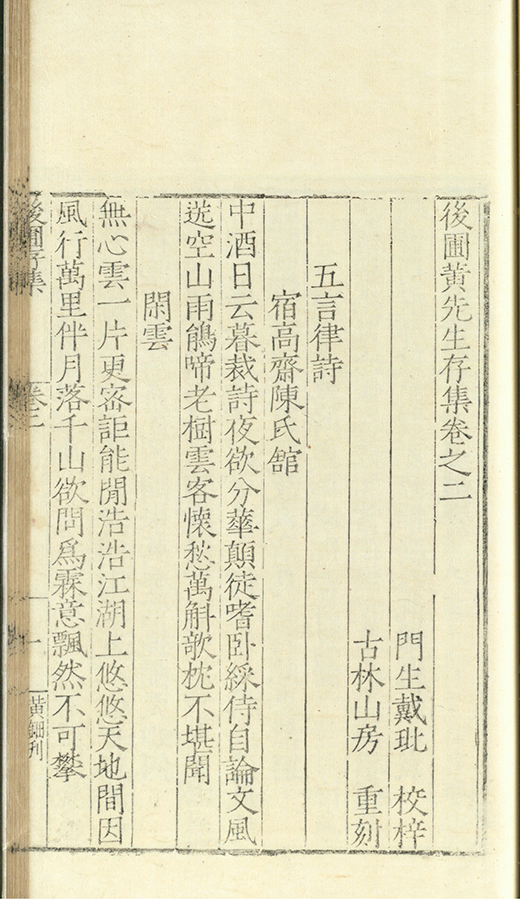 後圃黃先生存集卷之二
門生戴玭 校梓
古林山房 重刻
五言律詩
宿高齋陳氏舘
中酒日云暮裁詩夜欲分華顛徒嗜卧綵侍自論文風
送空山雨鵑啼老樹雲客懷愁萬斛欹枕不堪聞
閑雲
無心雲一片更密詎能閒浩浩江湖上悠悠天地間因
風行萬里伴月落千山欲問爲霖意飄然不可攀
後圃存集 卷二 一 黃鈿刊